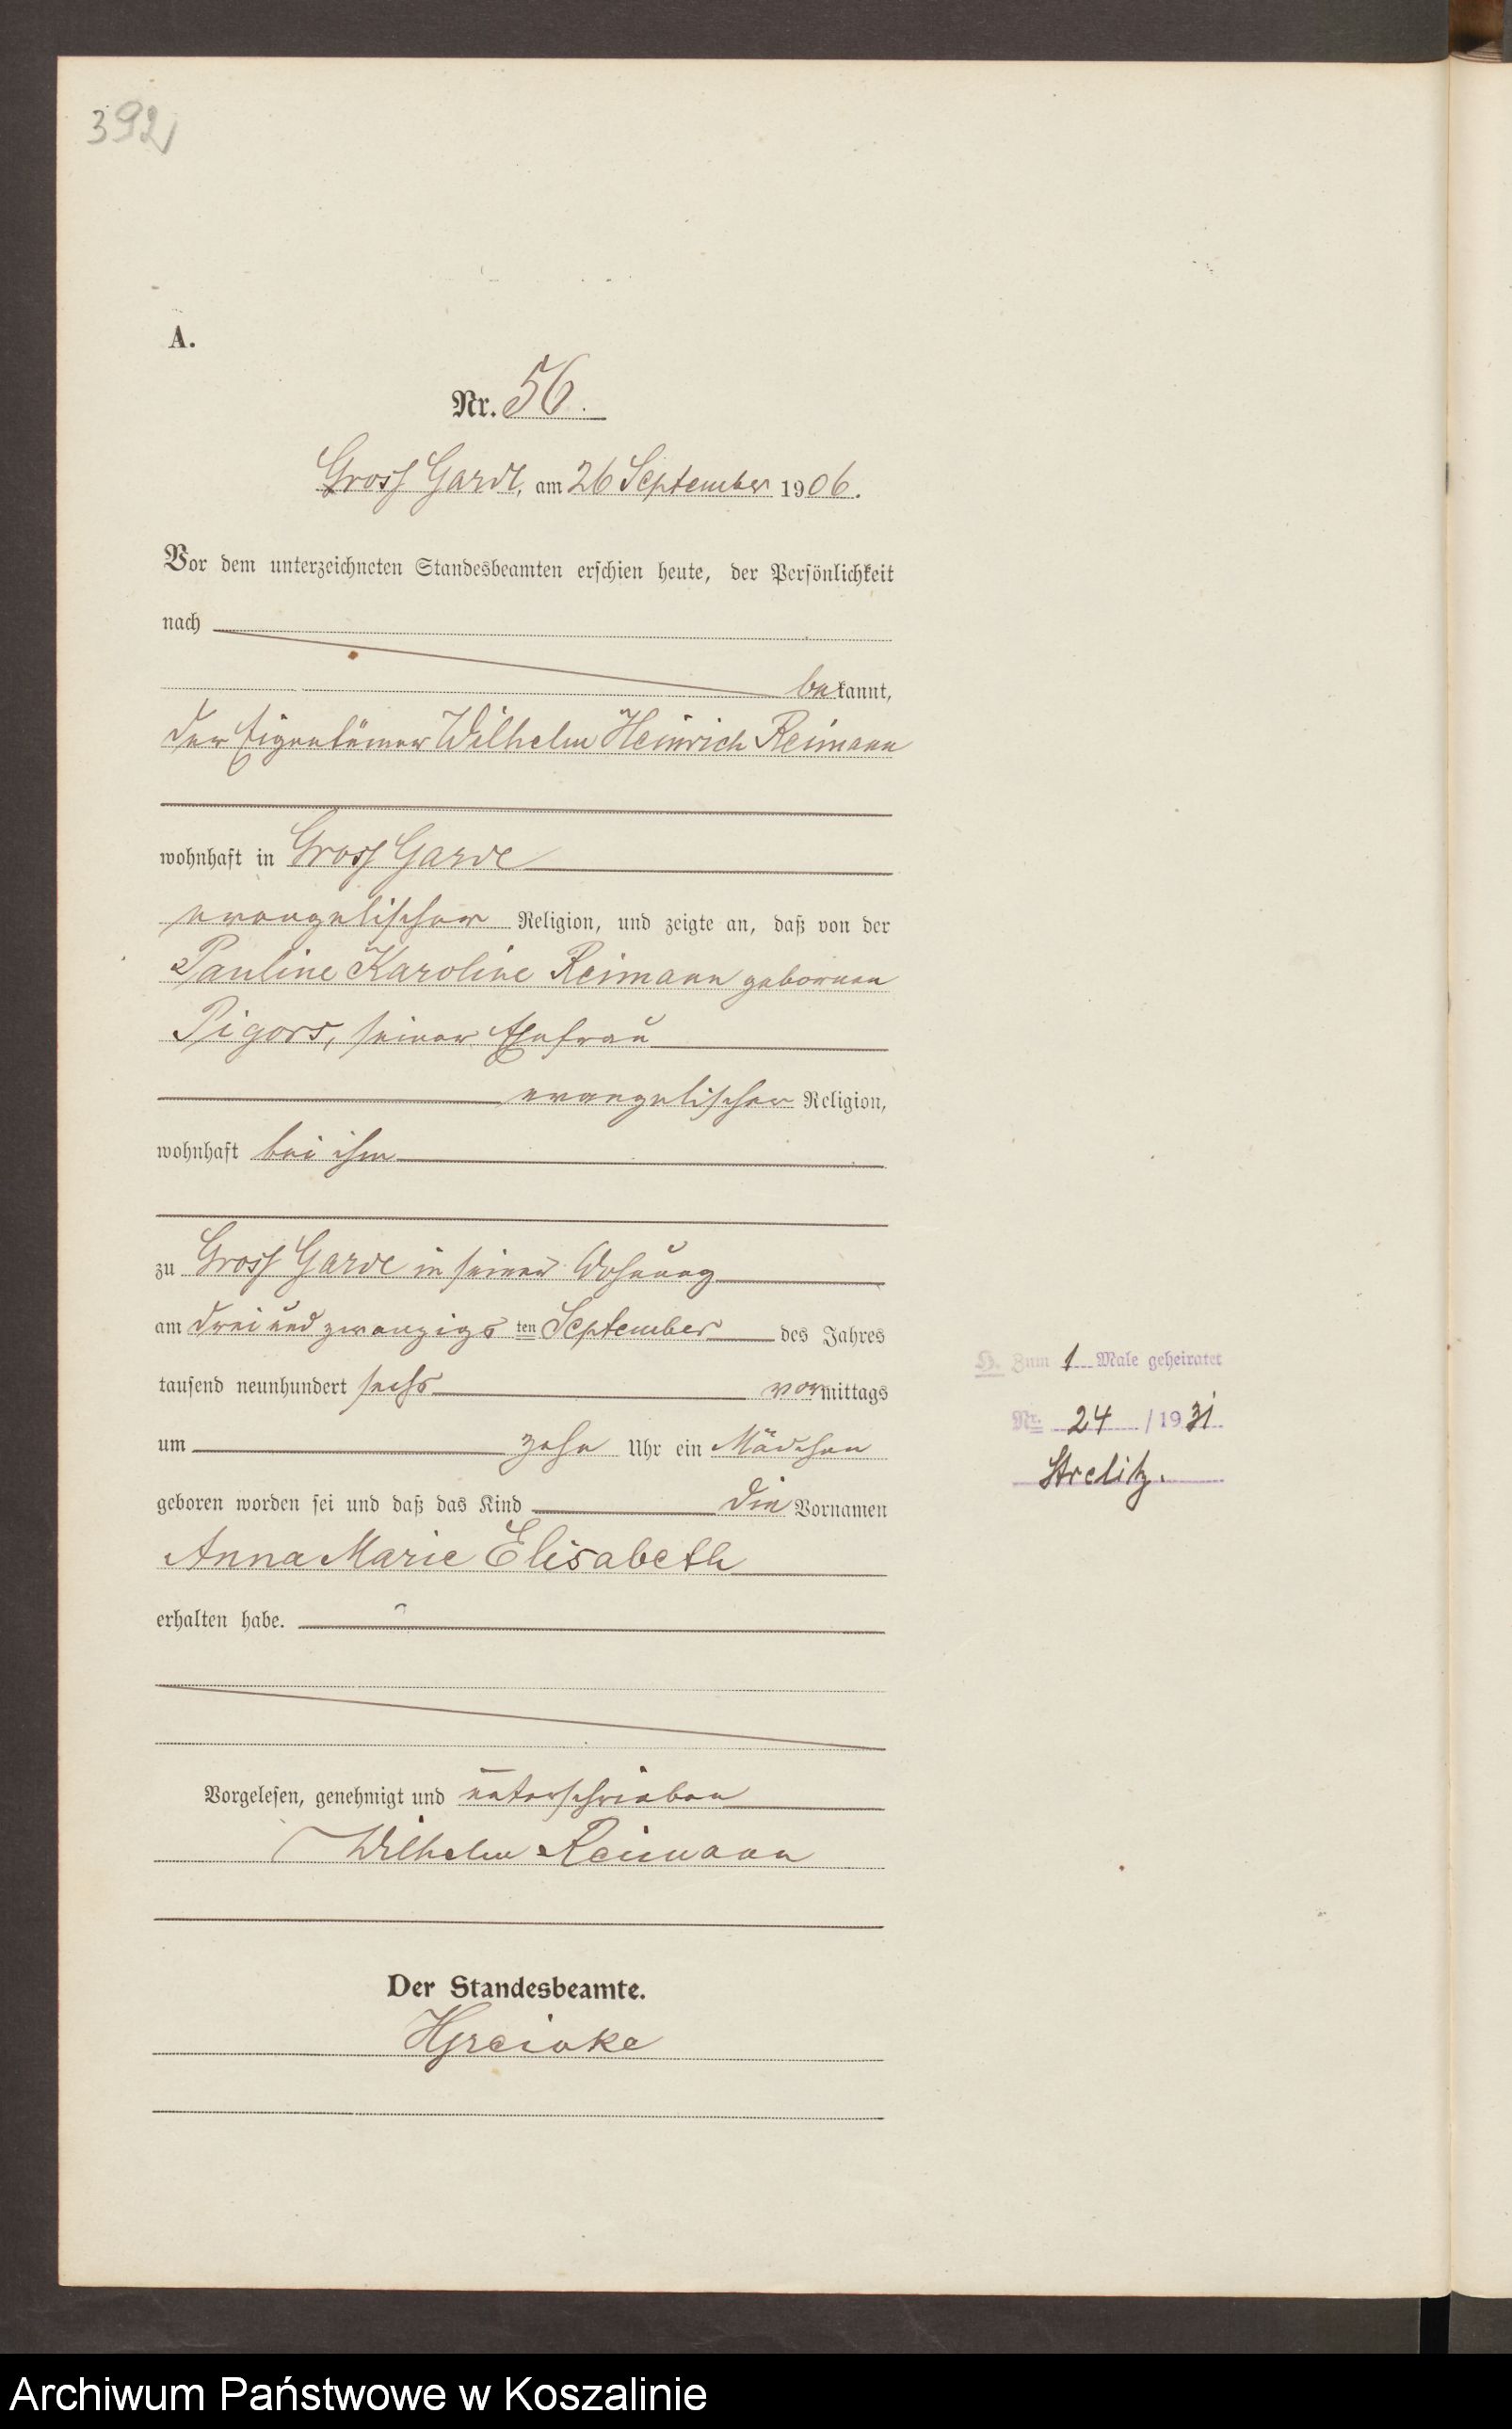 392
A.
Nr. 56.
Gross Garde, am 26 September 1906.
Vor dem unterzeichneten Standesbeamten erschien heute, der Persönlichkeit
nach
bekannt,
der Eigentümer Wilhelm Heinrich Reimann
wohnhaft in Gross Garde
evangelischer Religion, und zeigte an, daß von der
Pauline Karoline Reimann geborenen
Pigors, seiner Ehefrau
evangelischer Religion,
wohnhaft bei ihm
zu Gross Garde in seiner Wohnung
am drei und zwanzigs ten September des Jahres
tausend neunhundert sechs vormittags
um zehn Uhr ein Mädchen
geboren worden sei und daß das Kind die Vornamen
Anna Marie Elisabeth
erhalten habe.
H. Zum 1 Male geheiratet
Nr. 24 /1931
Strelitz.
Vorgelesen, genehmigt und unterschrieben
Wilhelm Reimann
Der Standesbeamte.
Archiwum Państwowe w Koszalinie